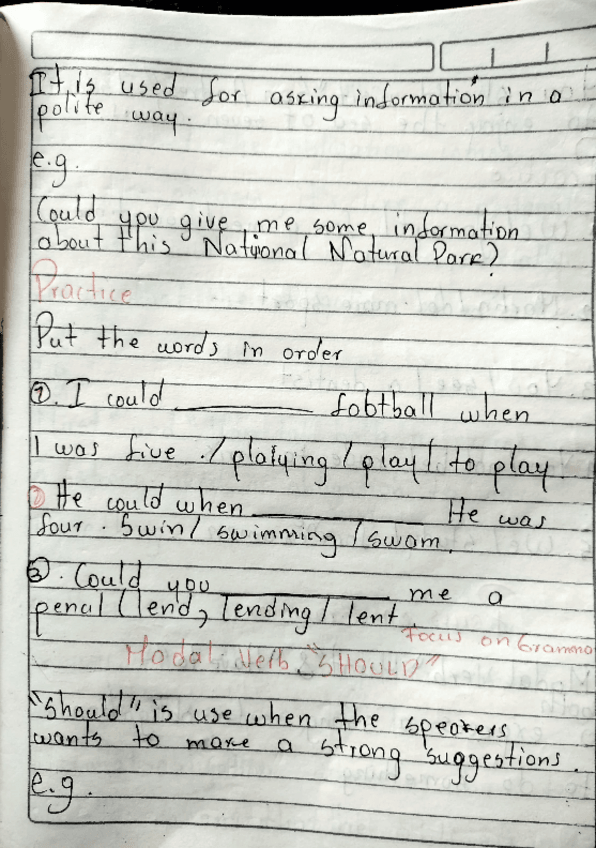 It is used for asking information in a
polite way.
e.g.
Could you give me some information
about this National Natural Park?
Practice
Put the words in order
①. I could ________ football when
I was five ./ platying / play / to play
② He could when ________ He was
four . Swin/ swimming / swom.
③. Could you ________ me a
penal (lend, lending / lent
Focus on Gramma
Modal Verb "SHOULD"
"Should" is use when the speakers
wants to make a strong suggestions.
e.g.